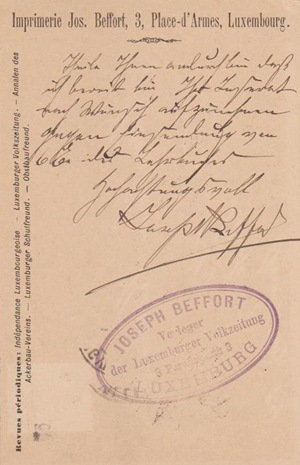 Imprimerie Jos. Beffort, 3, Place-d'Armes, Luxembourg.
Theile Ihnen andurch mit daß
ich bereit bin Ihr Inserat
nach Wunsch aufzunehmen
gegen Einsendung von
Hochachtungsvoll
Joseph Beffort
JOSEPH BEFFORT
Verleger
der Luxemburger Volkzeitung
3
LUXEMBURG
Revues périodiques: Indépendance Luxembourgeoise — Luxemburger Volkszeitung. — Annalen des
Ackerbau-Vereins. — Luxemburger Schulfreund. — Obstbaufreund.